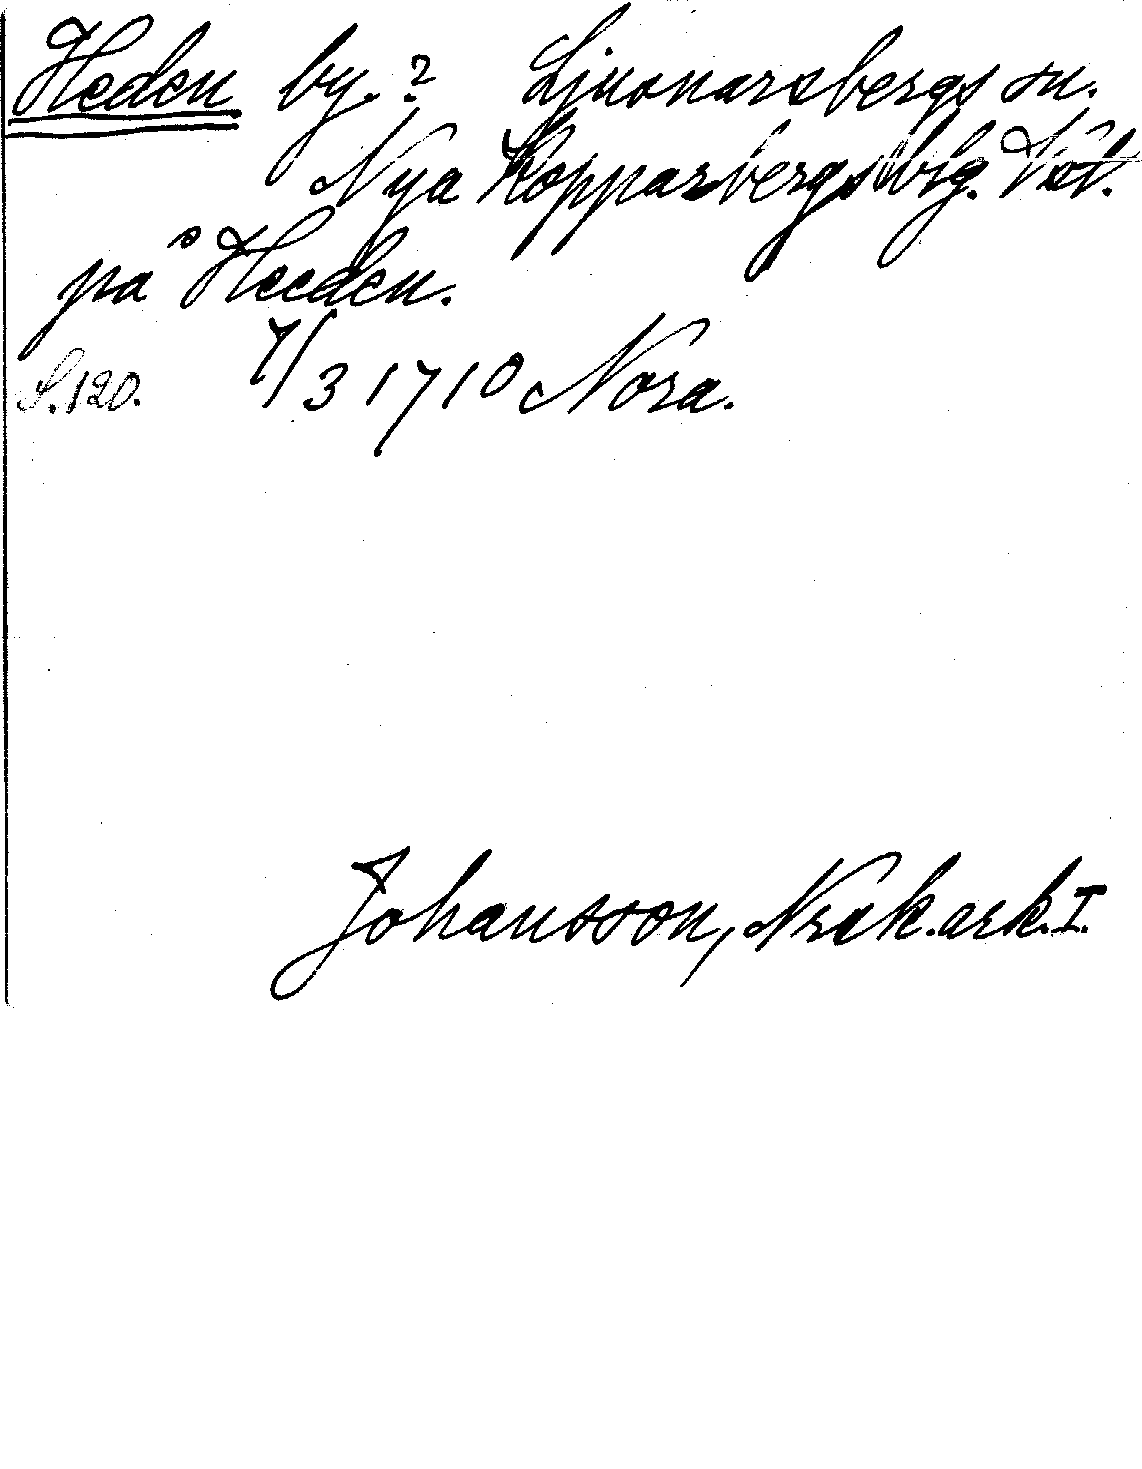 Heden by. ? Ljusnarsbergs sn.
Nya Kopparbergs blg. Väst.
på Heeden.
S. 120. 7/3 1710 Nora.
Johansson, Nrck.ark. I.